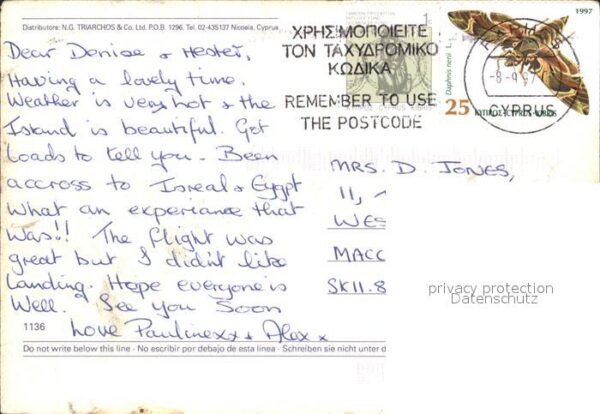 Distributors: N.G. TRIARCHOS & Co. Ltd. P.O.B. 1296. Tel. 02-435137 Nicosia, Cyprus
Dear Denise & Hester,
Having a lovely time.
Weather is very hot & the
Island is beautiful. Got
Loads to tell you. Been
accross to Isreal & Eygpt
What an experiance that
was!! The flight was
great but I didn't like
Landing. Hope everyone is
Well. See you Soon
Love Paulinexx & Alex x
1136
Do not write below this line - No escribir por debajo de esta linea - Schreiben sie nicht unter d
ΧΡΗΣΙΜΟΠΟΙΕΙΤΕ
ΤΟΝ ΤΑΧΥΔΡΟΜΙΚΟ
ΚΩΔΙΚΑ
REMEMBER TO USE
THE POSTCODE
1997
Daphnis nerii L.
-8-9.97
CYPRUS
25 ΚΥΠΡΟΣ-CYPRUS-KIBRIS
MRS. D. JONES,
11,
WES
MACC
SK11.8
privacy protection
Datenschutz